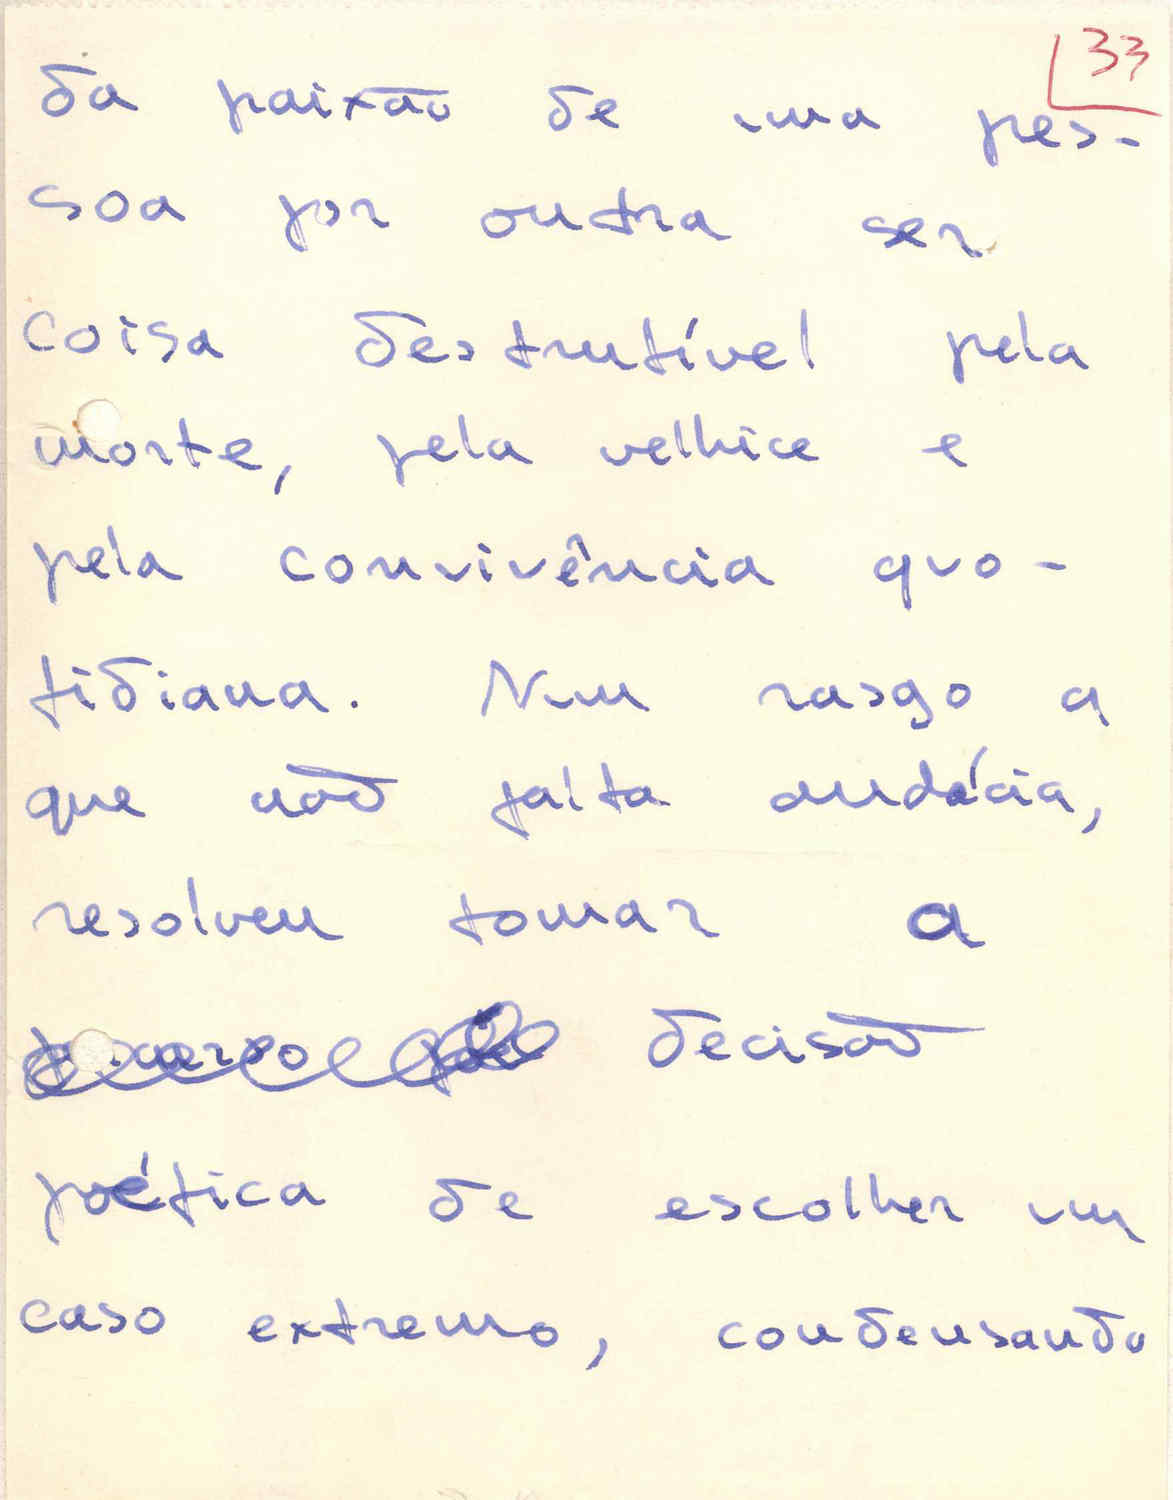 33
da paixão de uma pes-
soa por outra ser
coisa destrutível pela
morte, pela velhice e
pela convivência quo-
tidiana. Num rasgo a
que não falta audácia,
resolveu tomar a
decisão
poética de escolher um
caso extremo, condensando